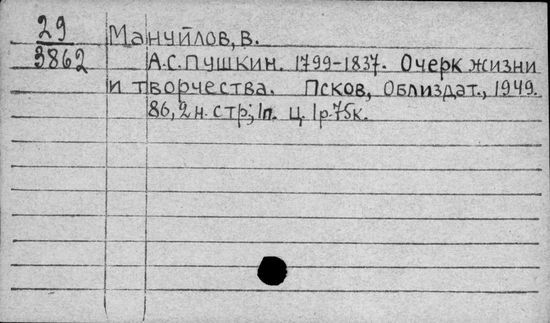 29
3862
Мануйлов, В.
А.С. Пушкин. 1799-1837. Очерк жизни
и творчества. Псков, Облиздат., 1949.
86, 2 н. стр; 1п. ц. 1р.75к.